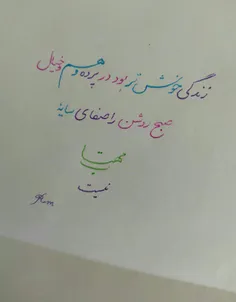 زندگی خوش تر بود در پرده وهم و خیال
صبح روشن را صفای سایهٔ
مهتاب
نیست